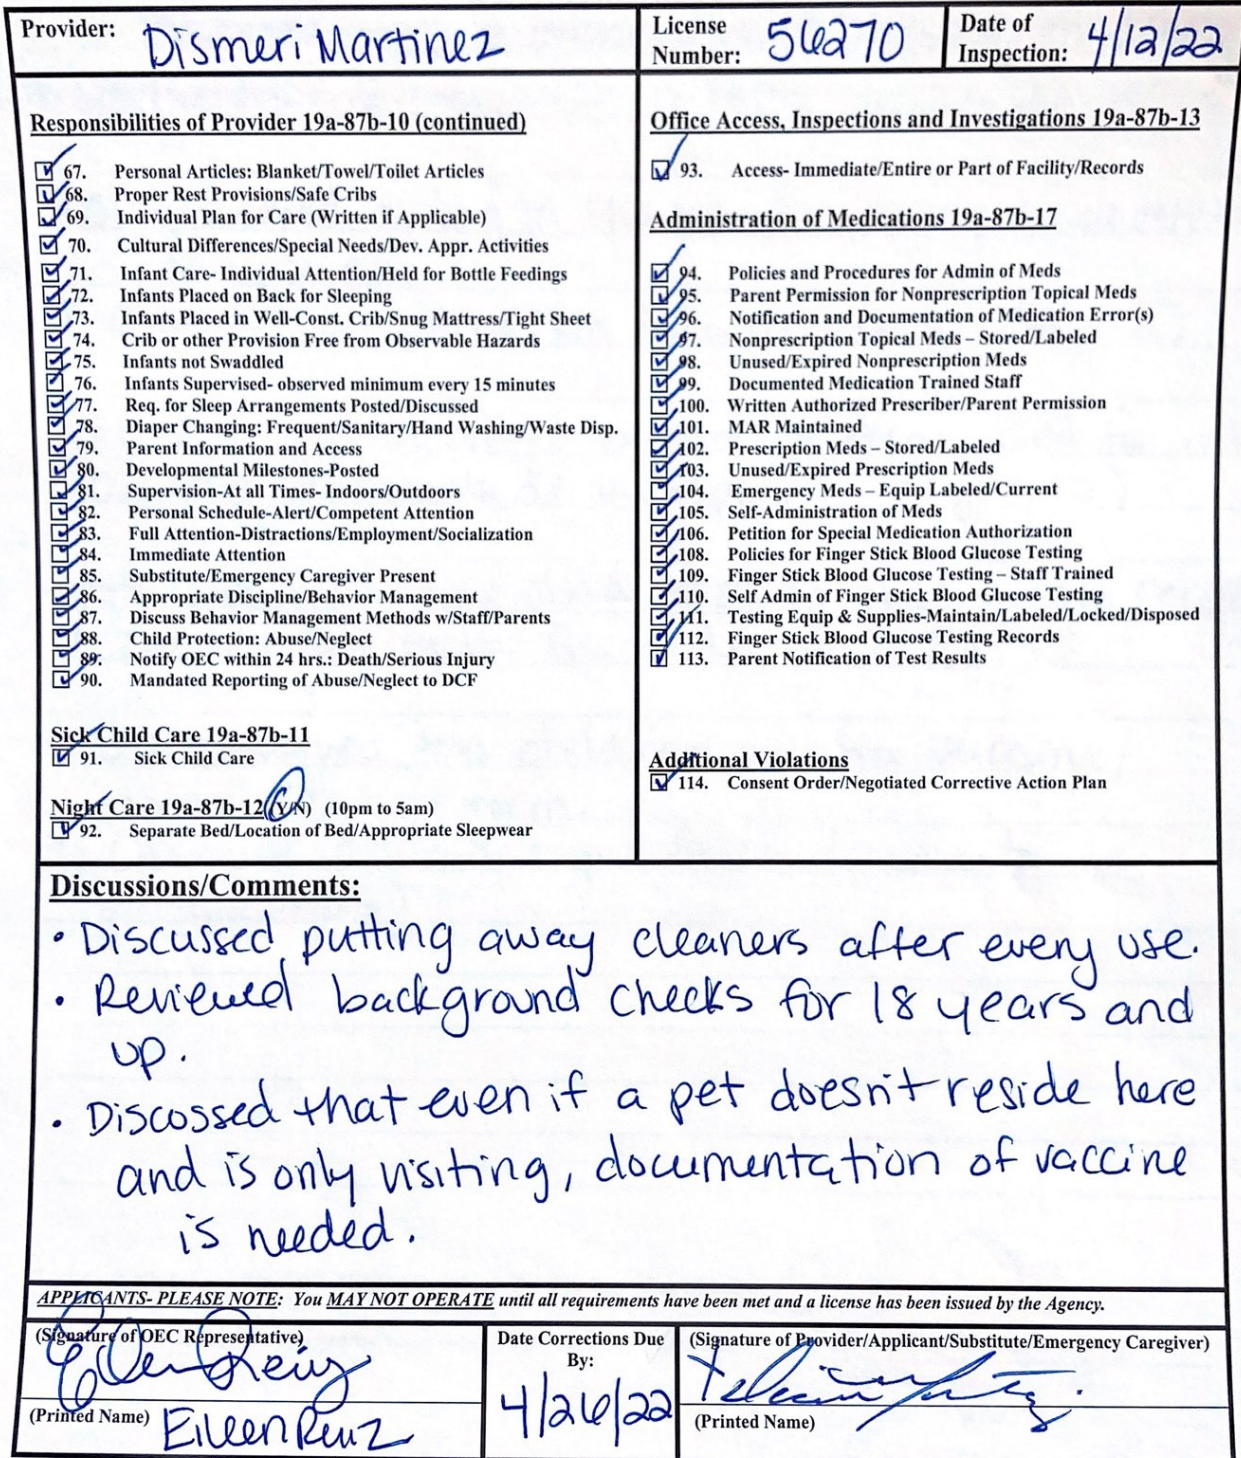 Provider: Dismeri Martinez
License Number: 56270
Date of Inspection: 4/12/22
Responsibilities of Provider 19a-87b-10 (continued)
67. Personal Articles: Blanket/Towel/Toilet Articles
68. Proper Rest Provisions/Safe Cribs
69. Individual Plan for Care (Written if Applicable)
70. Cultural Differences/Special Needs/Dev. Appr. Activities
71. Infant Care- Individual Attention/Held for Bottle Feedings
72. Infants Placed on Back for Sleeping
73. Infants Placed in Well-Const. Crib/Snug Mattress/Tight Sheet
74. Crib or other Provision Free from Observable Hazards
75. Infants not Swaddled
76. Infants Supervised- observed minimum every 15 minutes
77. Req. for Sleep Arrangements Posted/Discussed
78. Diaper Changing: Frequent/Sanitary/Hand Washing/Waste Disp.
79. Parent Information and Access
80. Developmental Milestones-Posted
81. Supervision-At all Times- Indoors/Outdoors
82. Personal Schedule-Alert/Competent Attention
83. Full Attention-Distractions/Employment/Socialization
84. Immediate Attention
85. Substitute/Emergency Caregiver Present
86. Appropriate Discipline/Behavior Management
87. Discuss Behavior Management Methods w/Staff/Parents
88. Child Protection: Abuse/Neglect
89. Notify OEC within 24 hrs.: Death/Serious Injury
90. Mandated Reporting of Abuse/Neglect to DCF
Sick Child Care 19a-87b-11
91. Sick Child Care
Night Care 19a-87b-12 (Y/N) (10pm to 5am)
92. Separate Bed/Location of Bed/Appropriate Sleepwear
Office Access, Inspections and Investigations 19a-87b-13
93. Access- Immediate/Entire or Part of Facility/Records
Administration of Medications 19a-87b-17
94. Policies and Procedures for Admin of Meds
95. Parent Permission for Nonprescription Topical Meds
96. Notification and Documentation of Medication Error(s)
97. Nonprescription Topical Meds – Stored/Labeled
98. Unused/Expired Nonprescription Meds
99. Documented Medication Trained Staff
100. Written Authorized Prescriber/Parent Permission
101. MAR Maintained
102. Prescription Meds – Stored/Labeled
103. Unused/Expired Prescription Meds
104. Emergency Meds – Equip Labeled/Current
105. Self-Administration of Meds
106. Petition for Special Medication Authorization
108. Policies for Finger Stick Blood Glucose Testing
109. Finger Stick Blood Glucose Testing – Staff Trained
110. Self Admin of Finger Stick Blood Glucose Testing
111. Testing Equip & Supplies-Maintain/Labeled/Locked/Disposed
112. Finger Stick Blood Glucose Testing Records
113. Parent Notification of Test Results
Additional Violations
114. Consent Order/Negotiated Corrective Action Plan
Discussions/Comments:
• Discussed putting away cleaners after every use.
• Reviewed background checks for 18 years and
up.
• Discossed that even if a pet doesn't reside here
and is only visiting, documentation of vaccine
is needed.
APPLICANTS- PLEASE NOTE: You MAY NOT OPERATE until all requirements have been met and a license has been issued by the Agency.
(Signature of OEC Representative)
(Printed Name) Eileen Ruiz
Date Corrections Due
By:
4/26/22
(Signature of Provider/Applicant/Substitute/Emergency Caregiver)
(Printed Name)